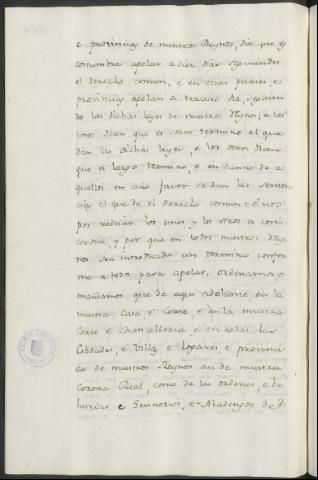 e provincias de nuestros Reynos, diz que es
costumbre apelar a diez dias siguiendo
el derecho comun, é en otras partes, e
provincias apelan a tercero dia, siguien
do las dichas leyes de nuestros Reynos, e los
unos dicen que es corto termino el que
dan las dichas leyes, e los otros dicen
que es largo termino, e en danno de a
quellos en cuio favor se dan las senten
cias el que da el derecho comun: é nos
por reducir los unos y los otros a con
cordia, y por que en todos nuestros Rey
nos sea introducido un termino confor
me a todos para apelar, ordenamos e
mandamos que de aqui adelante en la
nuestra Casa é Corte e en la nuestra
Corte e Chancelleria e en todas las
Cibdades, e Villas, e logares e provinci
as de nuestros Reynos asi de nuestra
Corona Real como de las ordenes, e be
hetrias e Sennorios, e Abadengos de